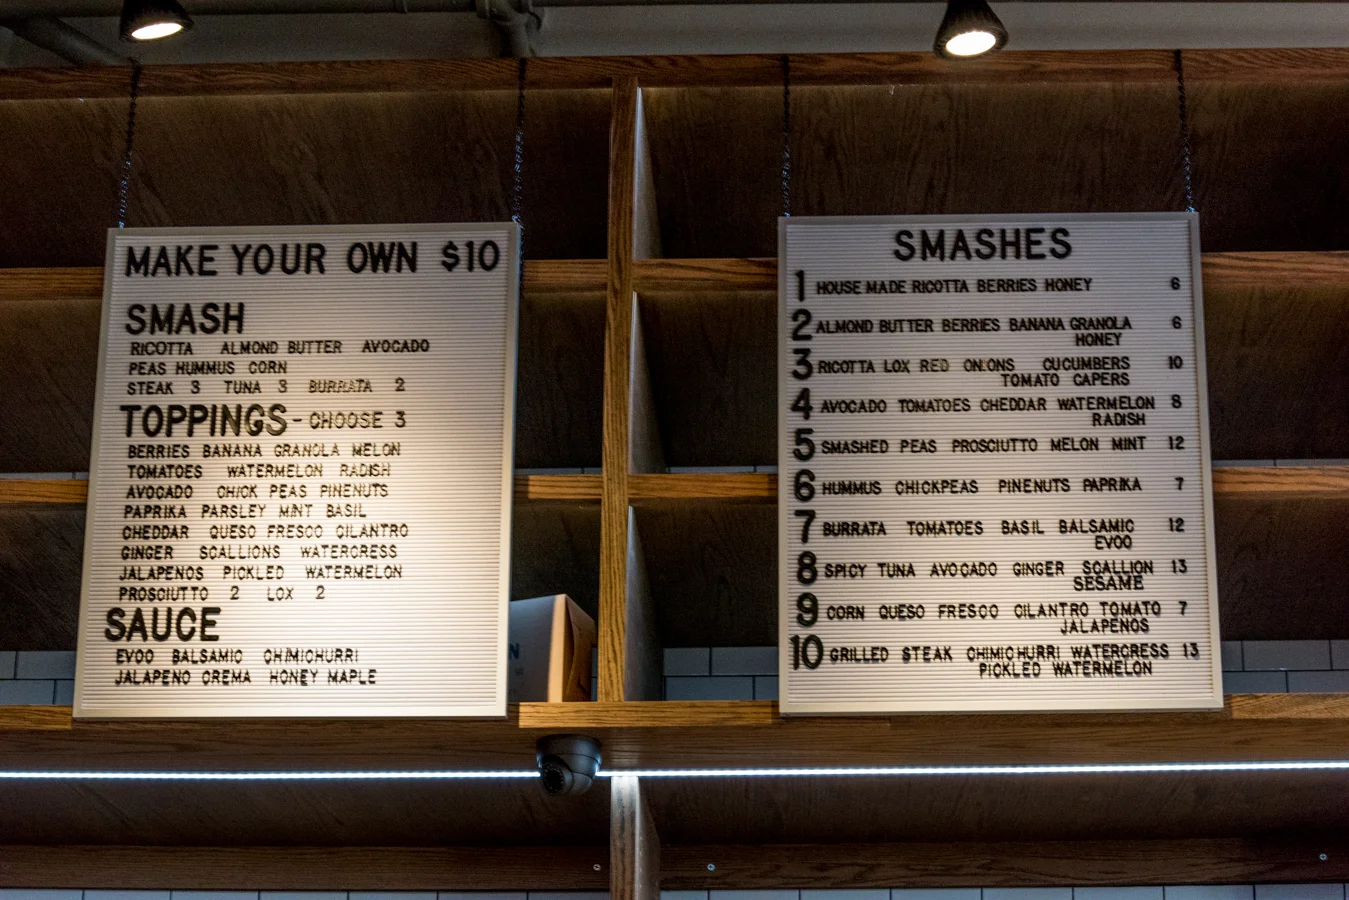 MAKE YOUR OWN $10
SMASH
RICOTTA ALMOND BUTTER AVOCADO
PEAS HUMMUS CORN
STEAK 3 TUNA 3 BURRATA 2
TOPPINGS - CHOOSE 3
BERRIES BANANA GRANOLA MELON
TOMATOES WATERMELON RADISH
AVOCADO CHICK PEAS PINENUTS
PAPRIKA PARSLEY MINT BASIL
CHEDDAR QUESO FRESCO CILANTRO
GINGER SCALLIONS WATERCRESS
JALAPENOS PICKLED WATERMELON
PROSCIUTTO 2 LOX 2
SAUCE
EVOO BALSAMIC CHIMICHURRI
JALAPENO CREMA HONEY MAPLE
SMASHES
1 HOUSE MADE RICOTTA BERRIES HONEY 6
2 ALMOND BUTTER BERRIES BANANA GRANOLA 6
HONEY
3 RICOTTA LOX RED ONIONS CUCUMBERS 10
TOMATO CAPERS
4 AVOCADO TOMATOES CHEDDAR WATERMELON 8
RADISH
5 SMASHED PEAS PROSCIUTTO MELON MINT 12
6 HUMMUS CHICKPEAS PINENUTS PAPRIKA 7
7 BURRATA TOMATOES BASIL BALSAMIC 12
EVOO
8 SPICY TUNA AVOCADO GINGER SCALLION 13
SESAME
9 CORN QUESO FRESCO CILANTRO TOMATO 7
JALAPENOS
10 GRILLED STEAK CHIMICHURRI WATERCRESS 13
PICKLED WATERMELON